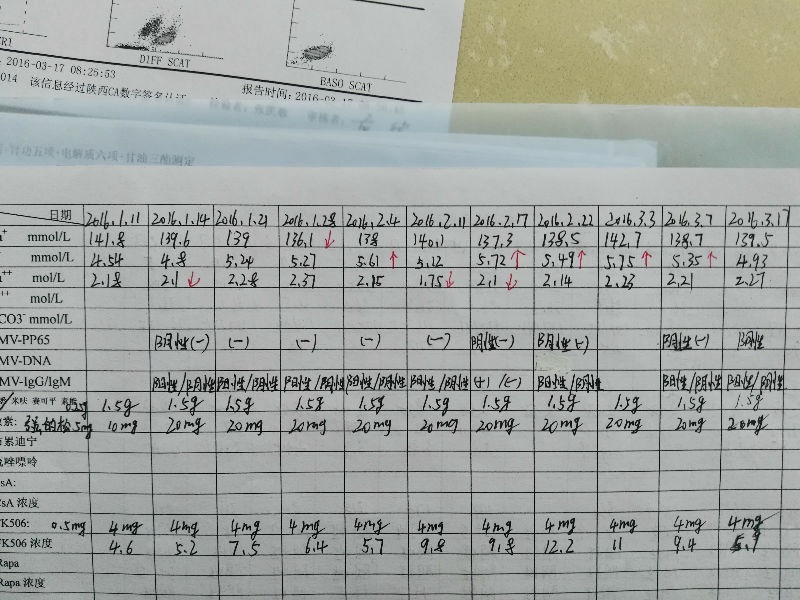 DIFF SCAT
BASO SCAT
2016-03-17 08:25:53
014 该信息经过陕西CA数字签名认证
报告时间: 2016-03-17
肝功五项·电解质六项·甘油三酯测定
日期 2016.1.11 2016.1.14 2016.1.21 2016.1.28 2016.2.4 2016.2.11 2016.2.17 2016.2.22 2016.3.3 2016.3.7 2016.3.17
a⁺ mmol/L 141.8 139.6 139 136.1 ↓ 138 140.1 137.3 138.5 142.7 138.7 139.5
mmol/L 4.54 4.8 5.24 5.27 5.61 ↑ 5.12 5.72 ↑ 5.49 ↑ 5.75 ↑ 5.35 ↑ 4.93
a⁺⁺ mol/L 2.18 2.1 ↓ 2.28 2.37 2.15 1.75 ↓ 2.1 ↓ 2.14 2.23 2.21 2.27
⁺⁺ mol/L
CO3⁻ mmol/L
MV-PP65 阴性(-) (-) (-) (-) (-) 阴性(-) 阴性(-) 阴性(-) 阴性
MV-DNA
MV-IgG/IgM 阴性/阴性 阴性/阴性 阴性/阴性 阴性/阴性 阴性/阴性 (+)/(-) 阴性/阴性 阴性/阴性 阴性/阴性
米呋 赛可平 0.25g 1.5g 1.5g 1.5g 1.5g 1.5g 1.5g 1.5g 1.5g 1.5g 1.5g 1.5g
激素: 强的松5mg 10mg 20mg 20mg 20mg 20mg 20mg 20mg 20mg 20mg 20mg 20mg
布累迪宁
硫唑嘌呤
sA:
sA 浓度
K506: 0.5mg 4mg 4mg 4mg 4mg 4mg 4mg 4mg 4mg 4mg 4mg 4mg
K506 浓度 4.6 5.2 7.5 6.4 5.7 9.8 9.8 12.2 11 9.4 5.9
Rapa
Rapa 浓度